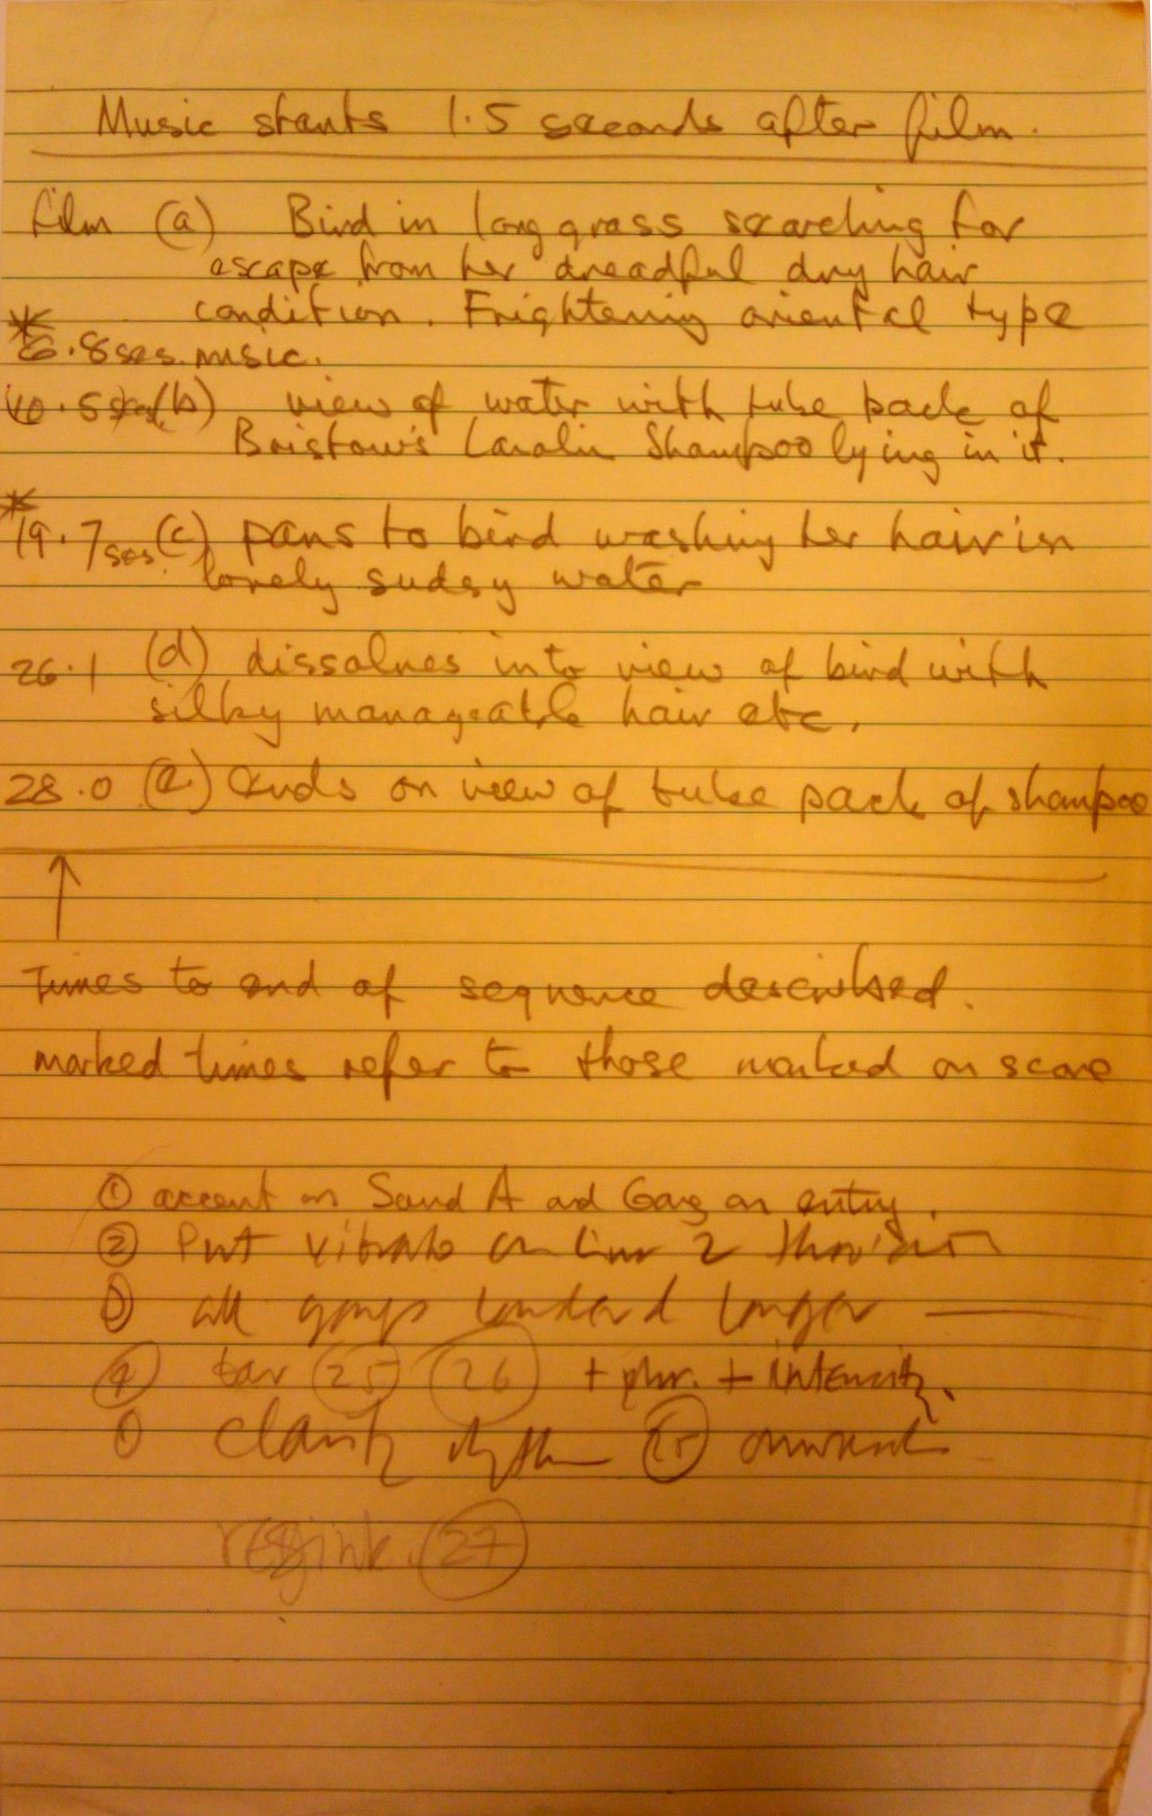 Music starts 1.5 seconds after film.
film (a) Bird in long grass searching for
escape from her dreadful dry hair
condition. Frightening oriental type
* 6.8 secs. music.
10.5 secs (b) view of water with tube pack of
Bristow's Lanolin Shampoo lying in it.
* 19.7 secs. (c) pans to bird washing her hair in
lovely sudsy water
26.1 (d) dissolves into view of bird with
silky manageable hair etc.
28.0 (e) ends on view of tube pack of shampoo
↑
Times to end of sequence described.
marked times refer to those marked on score
① accent on Sound A and Gong on entry.
② Put vibrato on line 2
all gongs louder longer
④ bar 25 26 + + intensity.
clarity rhythm onwards
27